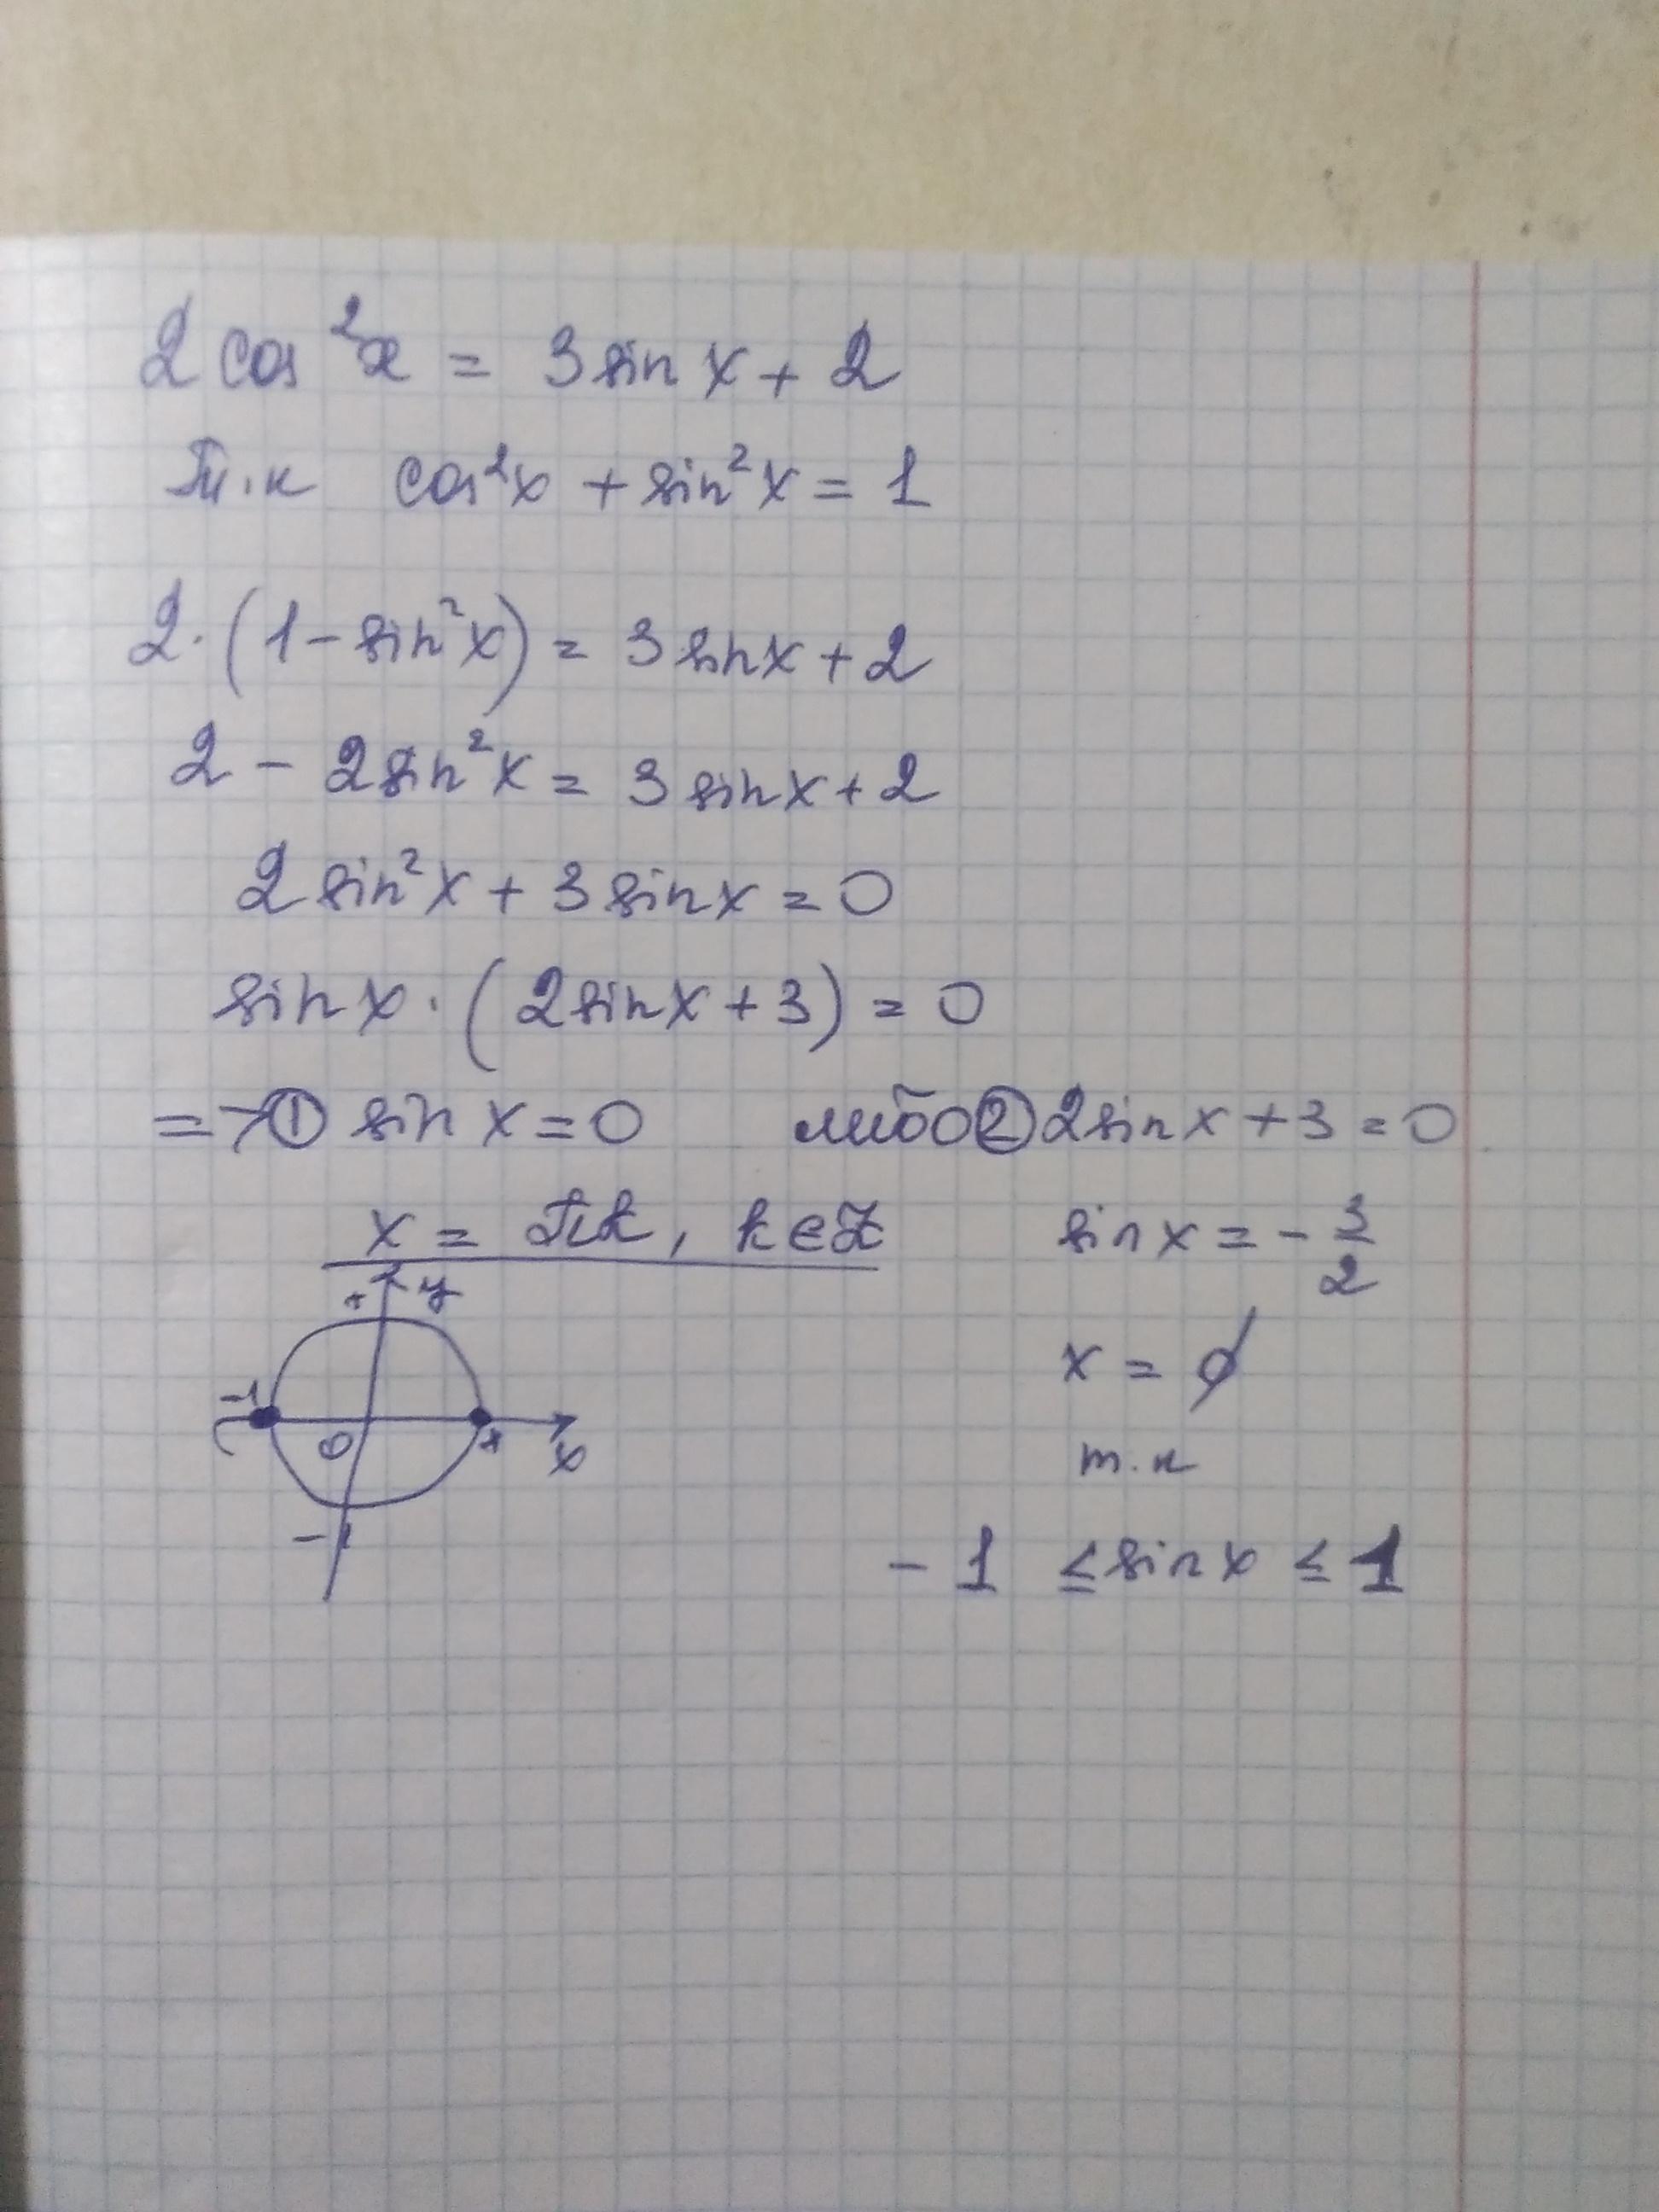 2 cos²x = 3 sin x + 2
Т.к cos²x + sin²x = 1
2·(1 - sin²x) = 3 sin x + 2
2 - 2 sin²x = 3 sin x + 2
2 sin²x + 3 sin x = 0
sin x · (2 sin x + 3) = 0
=> ① sin x = 0 либо ② 2 sin x + 3 = 0
x = πk, k ∈ Z
sin x = - 3/2
y
x = ∅
-1
0
x
т.к
-1
-1 ≤ sin x ≤ 1